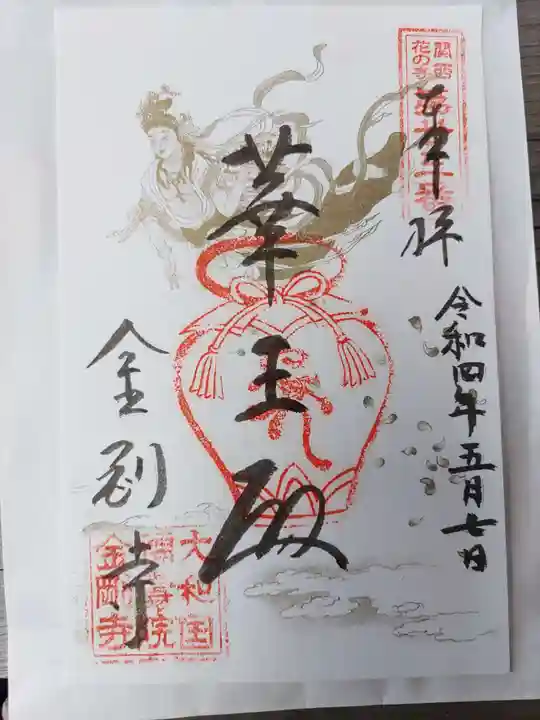 関西
花の寺
第廿二番
奉拝
令和四年五月七日
華王殿
金剛寺
大和国
金剛寺